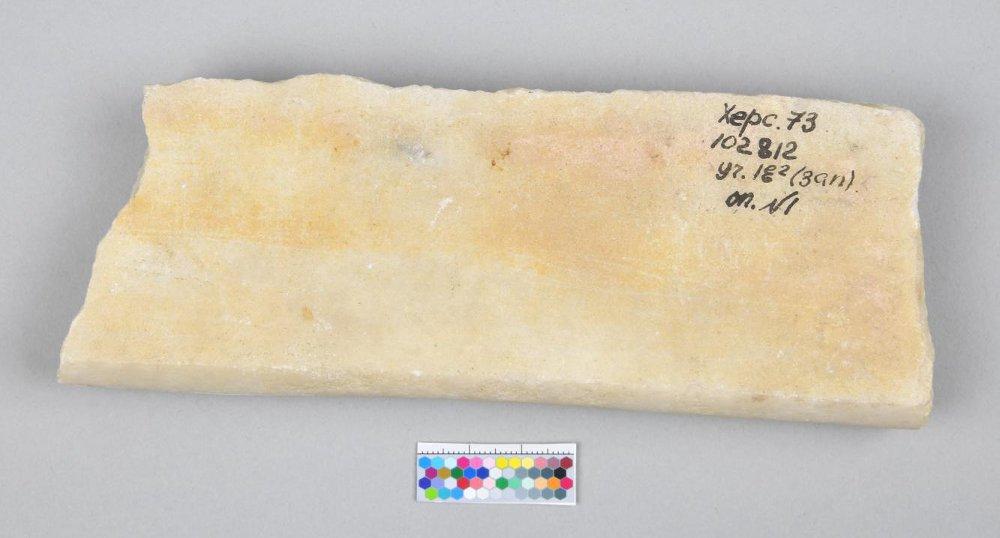 Херс. 73
102812
уг. 1g² (зап).
оп. N1